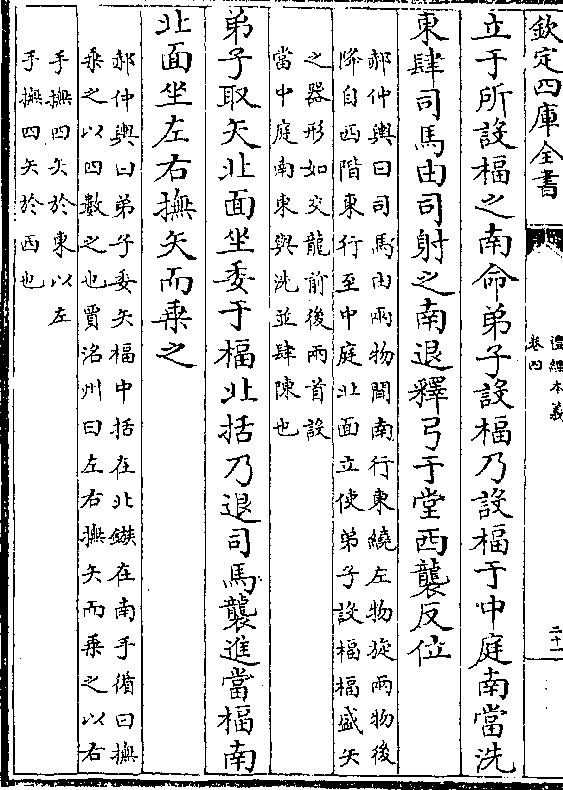 欽定四庫全書
禮經本義
卷四
二十一
立于所設楅之南命弟子設楅乃設楅于中庭南當洗
東肆司馬由司射之南退釋弓于堂西襲反位
郝仲輿曰司馬由兩物間南行東繞左物旋兩物後
降自西階東行至中庭北面立使弟子設楅楅盛矢
之器形如交龍前後兩首設
當中庭南東與洗並肆陳也
弟子取矢北面坐委于楅北括乃退司馬襲進當楅南
北面坐左右撫矢而乘之
郝仲輿曰弟子委矢楅中括在北鏃在南手循曰撫
乘之以四數之也賈洺州曰左右撫矢而乘之以右
手撫四矢於東以左
手撫四矢於西也